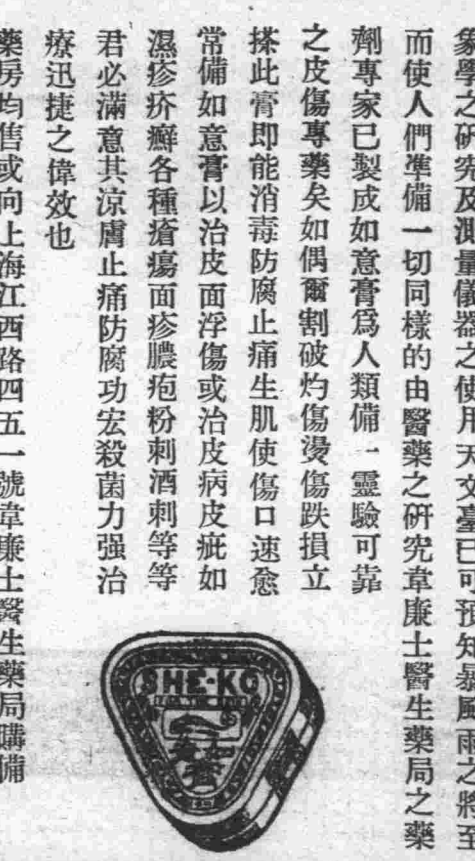 象學之研究及測量儀器之使用天文臺已可預知暴風雨之將至
而使人們準備一切同樣的由醫藥之研究韋廉士醫生藥局之藥
劑專家已製成如意膏爲人類備一靈驗可靠
之皮傷專藥矣如偶爾割破灼傷燙傷跌損立
搽此膏即能消毒防腐止痛生肌使傷口速愈
常備如意膏以治皮面浮傷或治皮病皮疵如
濕疹疥癬各種瘡瘍面疹膿疱粉刺酒刺等等
君必滿意其涼膚止痛防腐功宏殺菌力强治
療迅捷之偉效也
藥房均售或向上海江西路四五一號韋廉士醫生藥局購備
SHE-KO
如意膏